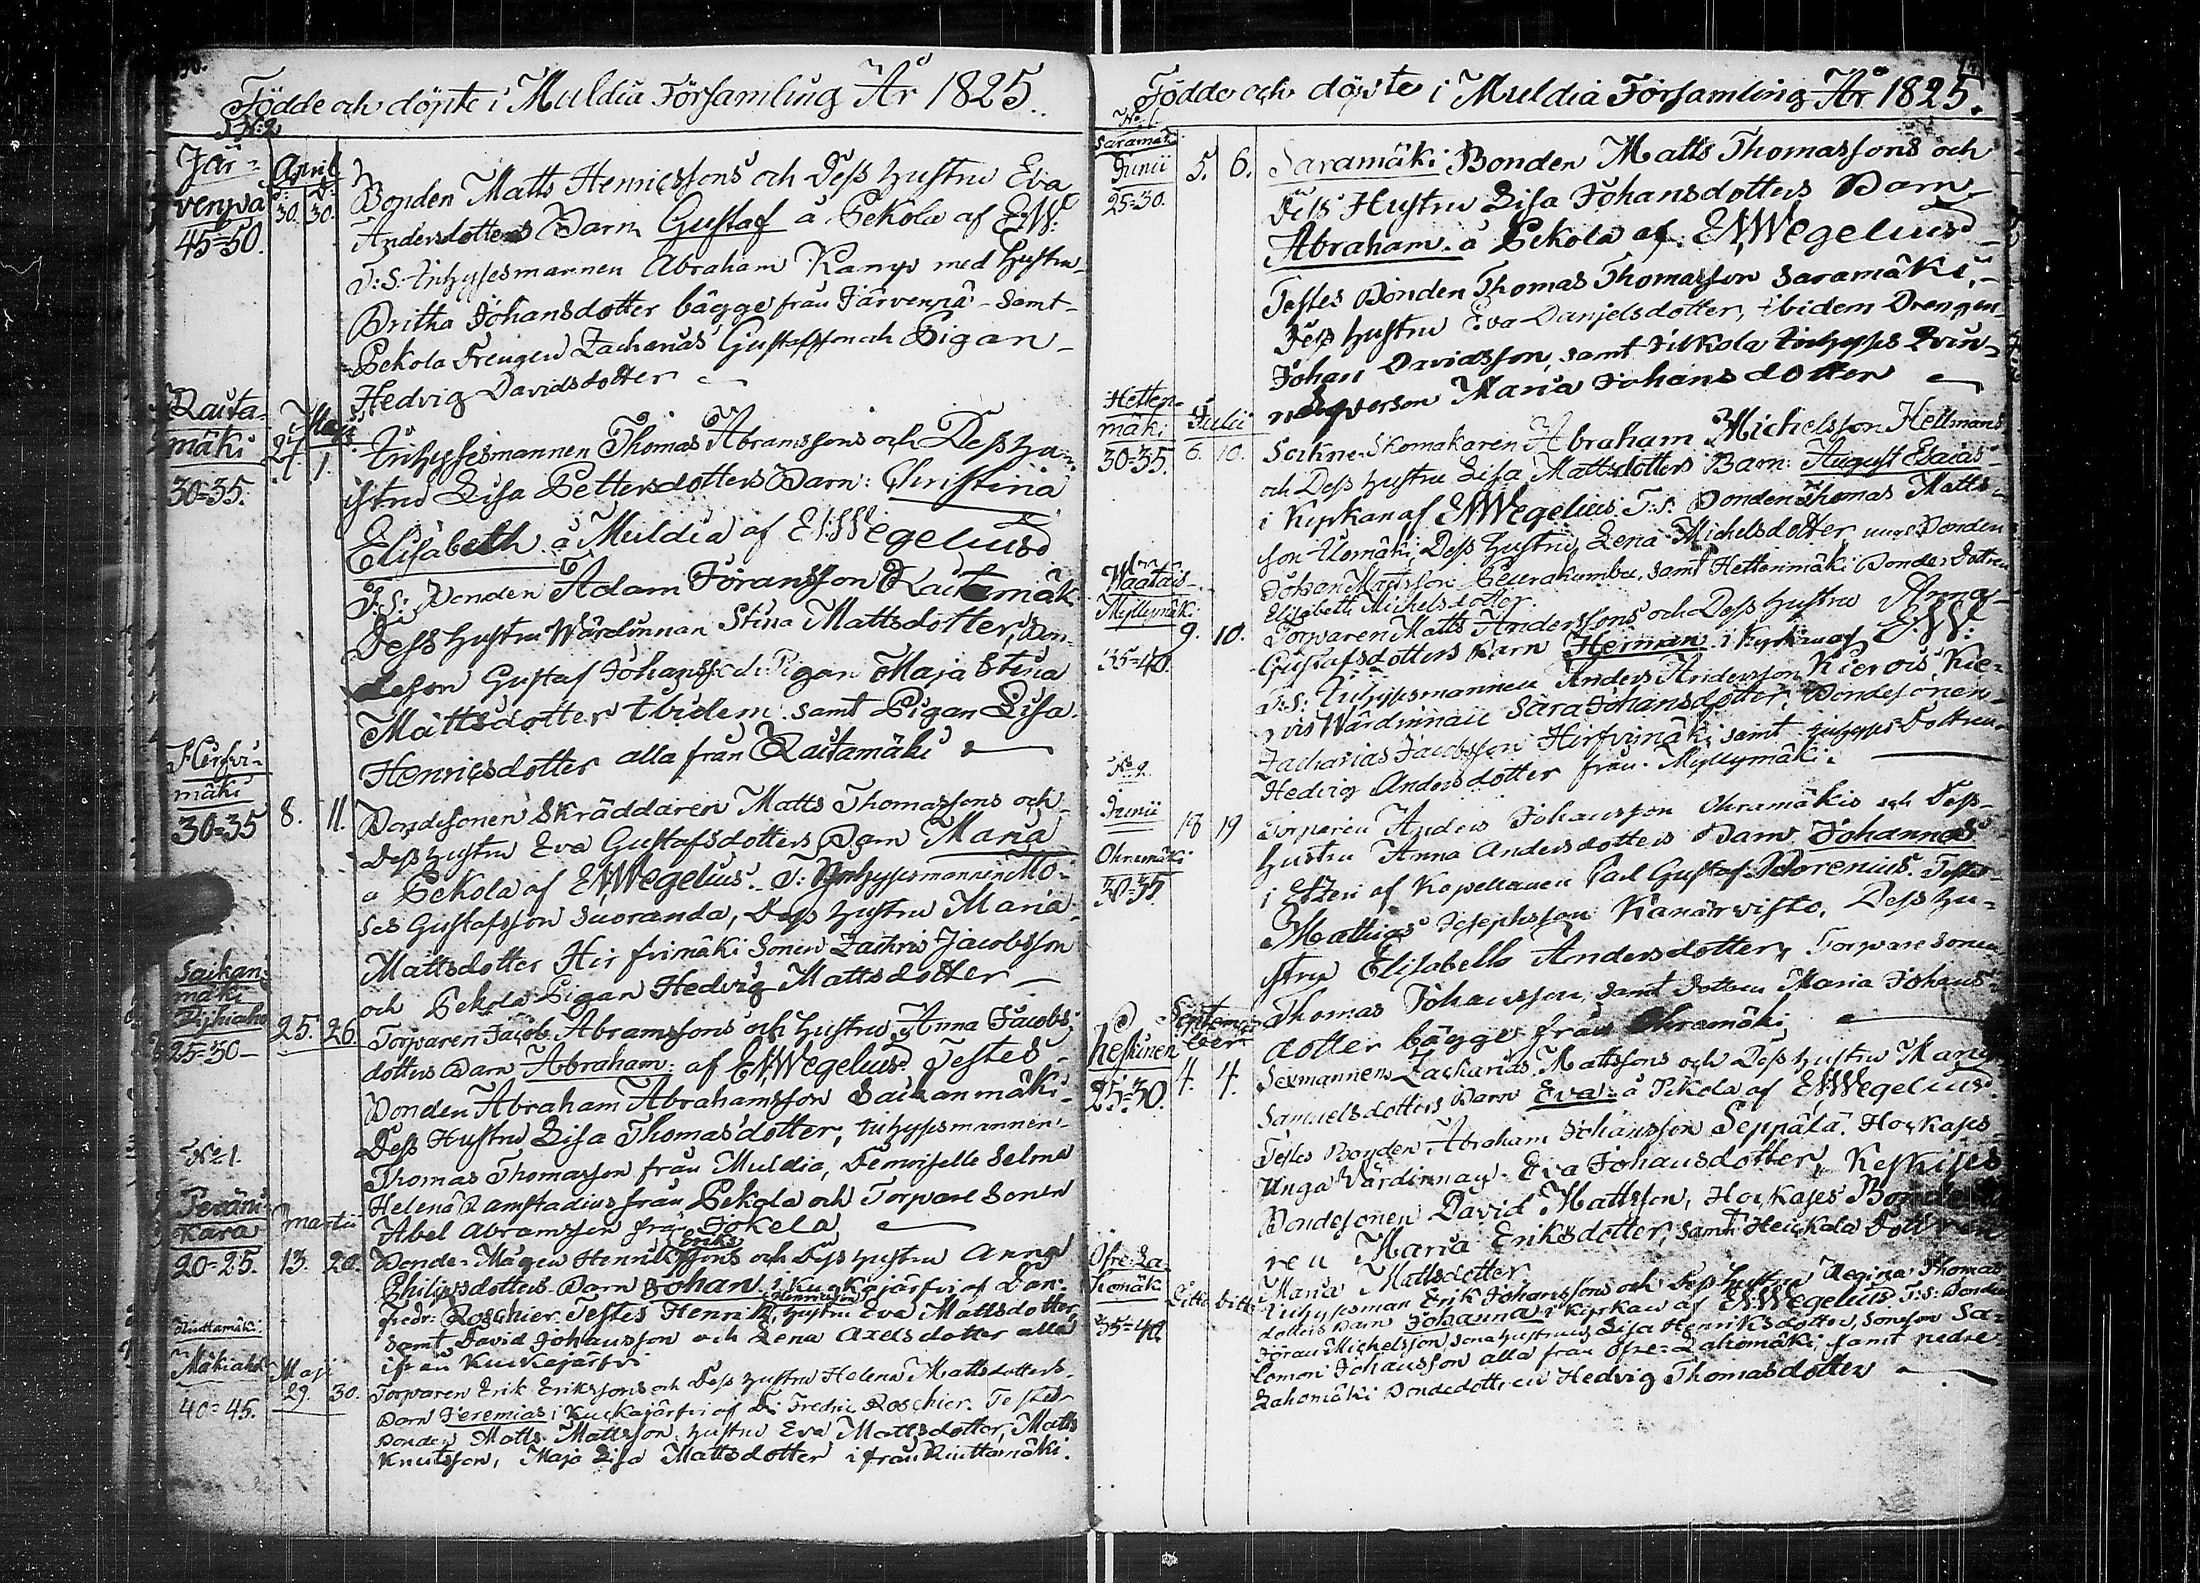 Födde och döpte i Muldia Församling År 1825.
Jär-
venpä
45=50.
April
30. 30.
Bonden Matts Henricssons och Dess hustru Eva
Andersdotters Barn Gustaf a Pekola af EW:
T:S: Inhysesmannen Abraham Kamp med hustru
Britha Johansdotter bägge från Järvenpä - samt
Pekola Drengen Zacharias Gustafsson och Pigan
Hedvig Davidsdotter
Rauta-
mäki
30=35.
Maji
27. 1.
Inhysesmannen Thomas Abramssons och Dess hu-
stru Lisa Pettersdotters Barn: Christina
Elisabeth a Muldia af E:Wegelius
T:S: Bonden Adam Göransson Rautamäk
Dess hustru Wärdinnan Stina Mattsdotter, Bon-
desson Gustaf Johansson och Pigan Maja Stina
Mattsdotter ibidem samt Pigan Lisa
Henricsdotter alla från Rautamäki
Hirsvi-
mäki
30=35
8. 11.
Bondesonen Skräddaren Matts Thomassons och
Dess hustru Eva Gustafsdotters Barn Maria
a Pekola af EWegelius. T: Inhysesmannen Mo-
ses Gustafsson Suoranda, Dess hustru Maria
Mattsdotter Hirsvimäki Sonen Zachris Jacobsson
och Pekola Pigan Hedvig Mattsdotter
Saikan-
mäki
25=30
25. 26.
Torparen Jacob Abramssons och hustru Anna Jacobs-
dotters Barn Abraham: af EWegelius. Testes
Bonden Abraham Abrahamsson Saikanmäki
Dess Hustru Lisa Thomasdotter, Inhysesmannen
Thomas Thomasson från Muldia, Demoiselle Selma
Helena Ramstadius från Pekola och Torpare Sonen
Abel Abramsson från Jokela
No 1.
Perän-
kara
20=25.
Martii
13. 20.
Eriks
Bonde-Mågen Henrik sons och Dess hustru Anna
Philipsdotters Barn Johan i Kuckajärfvi af Dan:
Fredr: Roschier. Testes Henrik Henriksson, hustru Eva Mattsdotter,
samt David Johansson och Lena Axelsdotter alla
ifrån Kuckajärfvi
Riuttamäki
Mäkiaho
40=45.
Maji
29. 30.
Torparen Erik Erikssons och Dess hustru Helena Mattsdotters
Barn Jeremias i Kuckajärfvi af D: Fredric Roschier. Testes
Bonden Matts Mattsson, hustru Eva Mattsdotter, Matts
Knutsson, Maja Lisa Mattsdotter ifrån Riuttamäki.
Födde och döpte i Muldia Församling År 1825.
Saramäk
Junii
25=30.
5. 6.
Saramäki Bonden Matts Thomassons och
Dess Hustru Lisa Johansdotters Barn
Abraham. a Pekola af EWegelius
Testes Bonden Thomas Thomasson Saramäki,
Dess hustru Eva Danjelsdotter, ibidem Drengen
Johan Davidsson, samt Jukola Inhyses Qvin-
nsperson Maria Johansdotter
Hetten-
mäki
30=35.
Julii
6. 10.
Sockne Skomakaren Abraham Michelsson Hellmans
och Dess hustru Lisa Mattsdotters Barn: August Esaias
i Kyrkan af EWegelius. T:S: Bonden Thomas Matts-
son Ulomäki, Dess hustru Lena Michelsdotter unge Bonden
Johan Mattsson Peurakumbu, samt Hettenmäki Bonde Dottren
Elisabeth Michelsdotter.
Myllymäk
35=40.
9. 10.
Torparen Matts Anderssons och Dess hustru Anna
Gustafsdotters Barn Herman i Kyrkan af E:W:
T:S: Inhysesmannen Anders Andersson Kierois, Kie-
rois Wärdinnan Sara Johansdotter, Bondesonen
Zacharias Jacobsson Hirsvimäki samt Inhyses Dottren
Hedvig Andersdotter från Myllymäki.
No 2
Junii
Ohramäki
30=35
18 19
Torparen Anders Johansson Ohramäkis och Dess
hustru Anna Andersdotters Barn Johannes
i Etzeri af Kapellanen Carl Gustaf Dorenius. Testes
Mathias Josephsson Kanärvisto, Dess hu-
stru Elisabeth Andersdotter, Torpare sonen
Thomas Johansson samt Dottren Maria Johans-
dotter bägge från Ohramäki
Keskinen
25=30.
September
4. 4.
Sexmannen Zacharias Mattssons och Dess hustru Maria
Samuelsdotters Barn Eva: a Pekola af EWegelius.
Testes Bonden Abraham Johansson Seppälä. Horkajes
Unga Värdinnan Eva Johansdotter, Keskises
Bondesonen David Mattsson, Horkajes
Maria Eriksdotter, samt Heickola Dottren
Maria Mattsdotter.
Ofre-La-
homäk
35=40
Ditto Ditto
Inhysesman Erik Johanssons och Dess hustru Regina Thomas-
dotters Barn Johanna i Kyrkan af EWegelius. T:S: Bonden
Göran Michelsson, Sonehustrun Lisa Henriksdotter, Soneson Sa-
lomon Johansson alla från Ofre-Lahomäki, samt nedre
Lahomäki Bondedottren Hedvig Thomasdotter